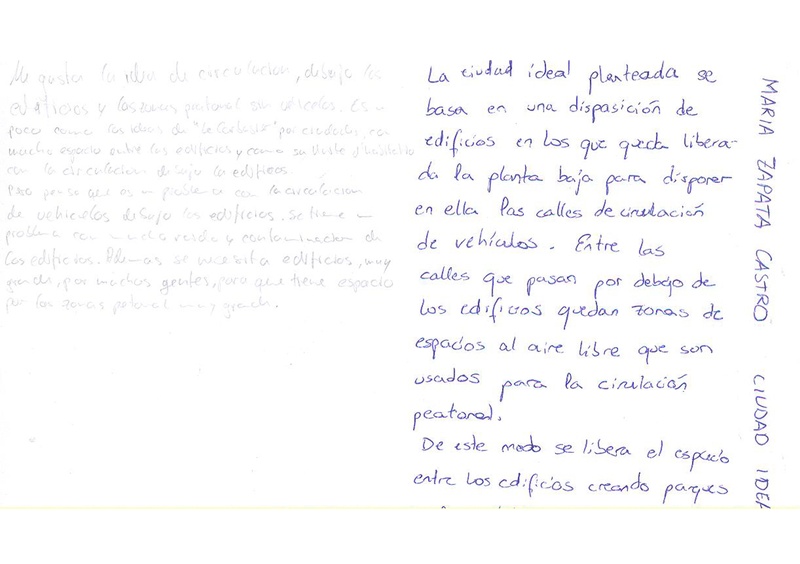 Me gusta la idea de circulacion, debajo los
edificios y las zonas peatonal sin vehiculos. Es un
poco como las ideas de "Le Corbusier" por ciudades, con
mucho espacio entre los edificios y como su
con la circulacion debajo la edificios.
Pero pienso que es un problema con la circulacion
de vehiculos debajo los edificios. Se tiene un
problema con mucho ruido y contaminacion de
los edificios. Ademas se necesita edificios, muy
grandes, por muchas gentes, para que tiene espacio
por las zonas peatonal muy grande.
La ciudad ideal planteada se
basa en una disposición de
edificios en los que queda libera-
da la planta baja para disponer
en ella las calles de circulación
de vehículos. Entre las
calles que pasan por debajo de
los edificios quedan zonas de
espacios al aire libre que son
usados para la circulación
peatonal.
De este modo se libera el espacio
entre los edificios creando parques
MARIA ZAPATA CASTRO CIUDAD IDEA